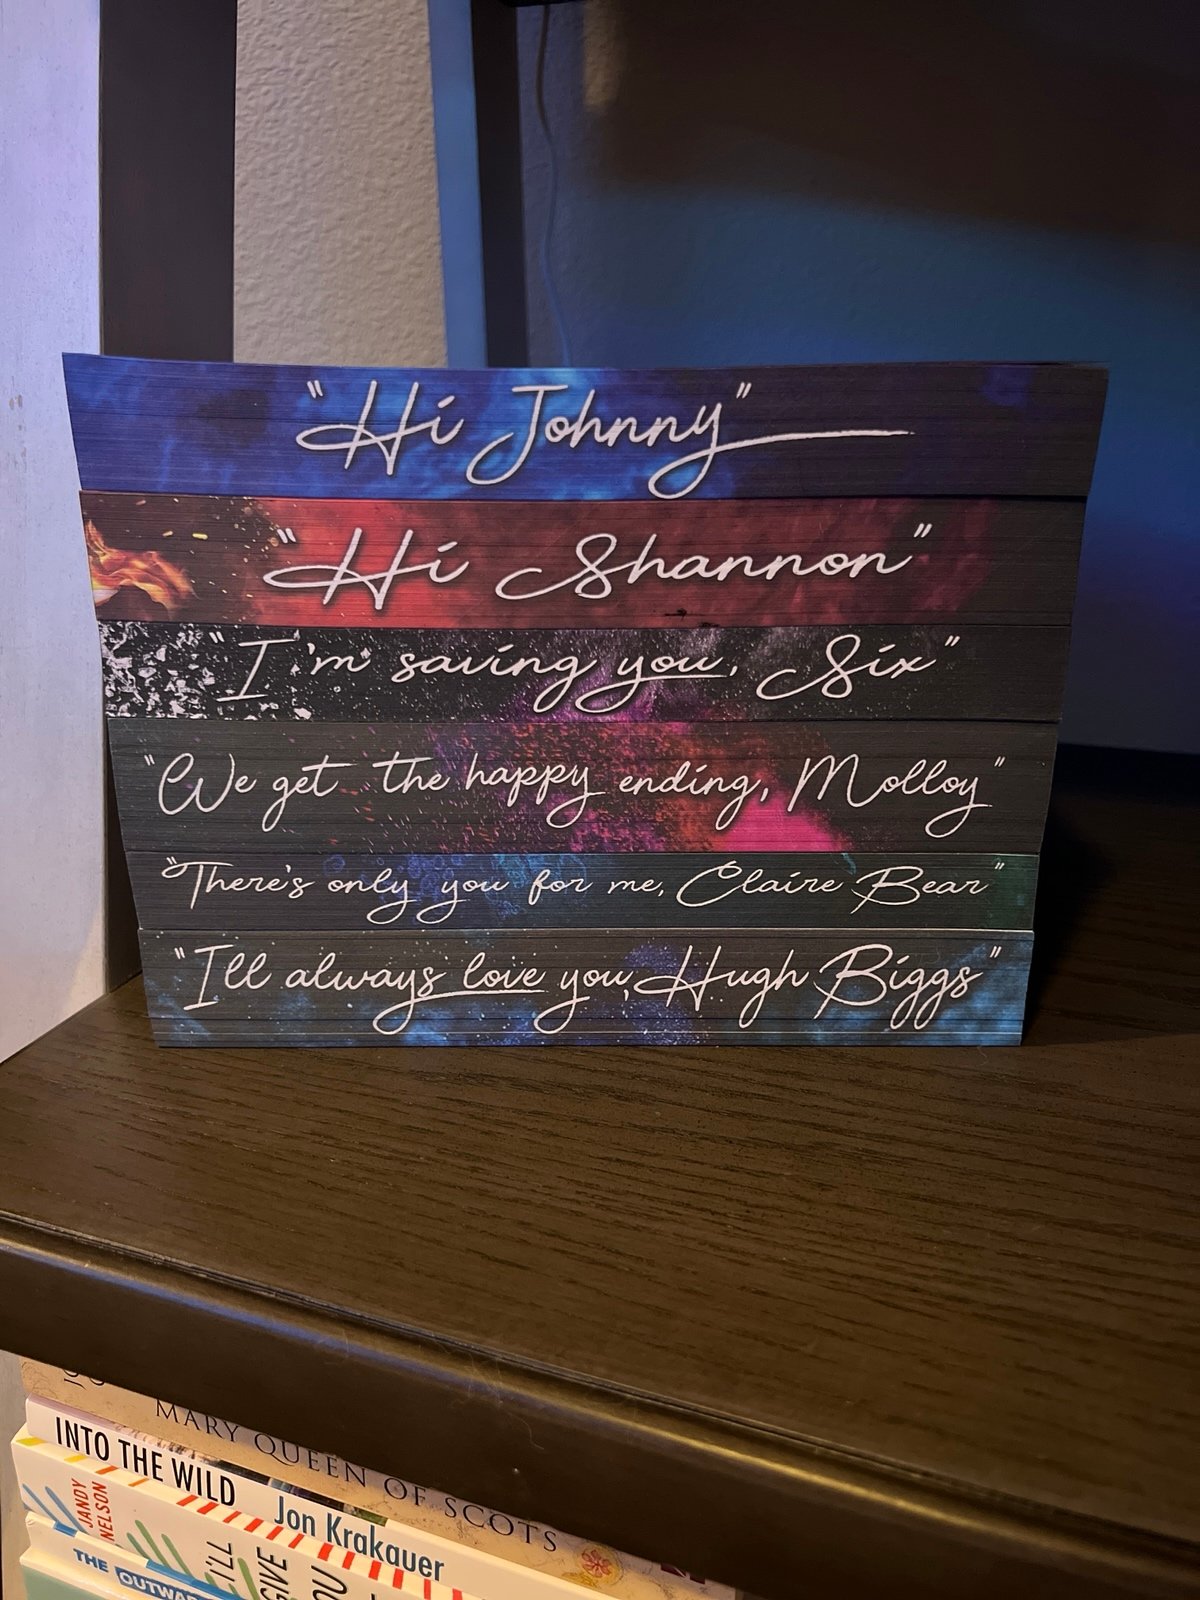 "Hi Johnny"
"Hi Shannon"
"I'm saving you, Six"
"We get the happy ending, Molloy"
"There's only you for me, Claire Bear"
"I'll always love you, Hugh Biggs"
MARY QUEEN OF SCOTS
INTO THE WILD Jon Krakauer
JANDY
NELSON
I'LL
GIVE
YOU
THE